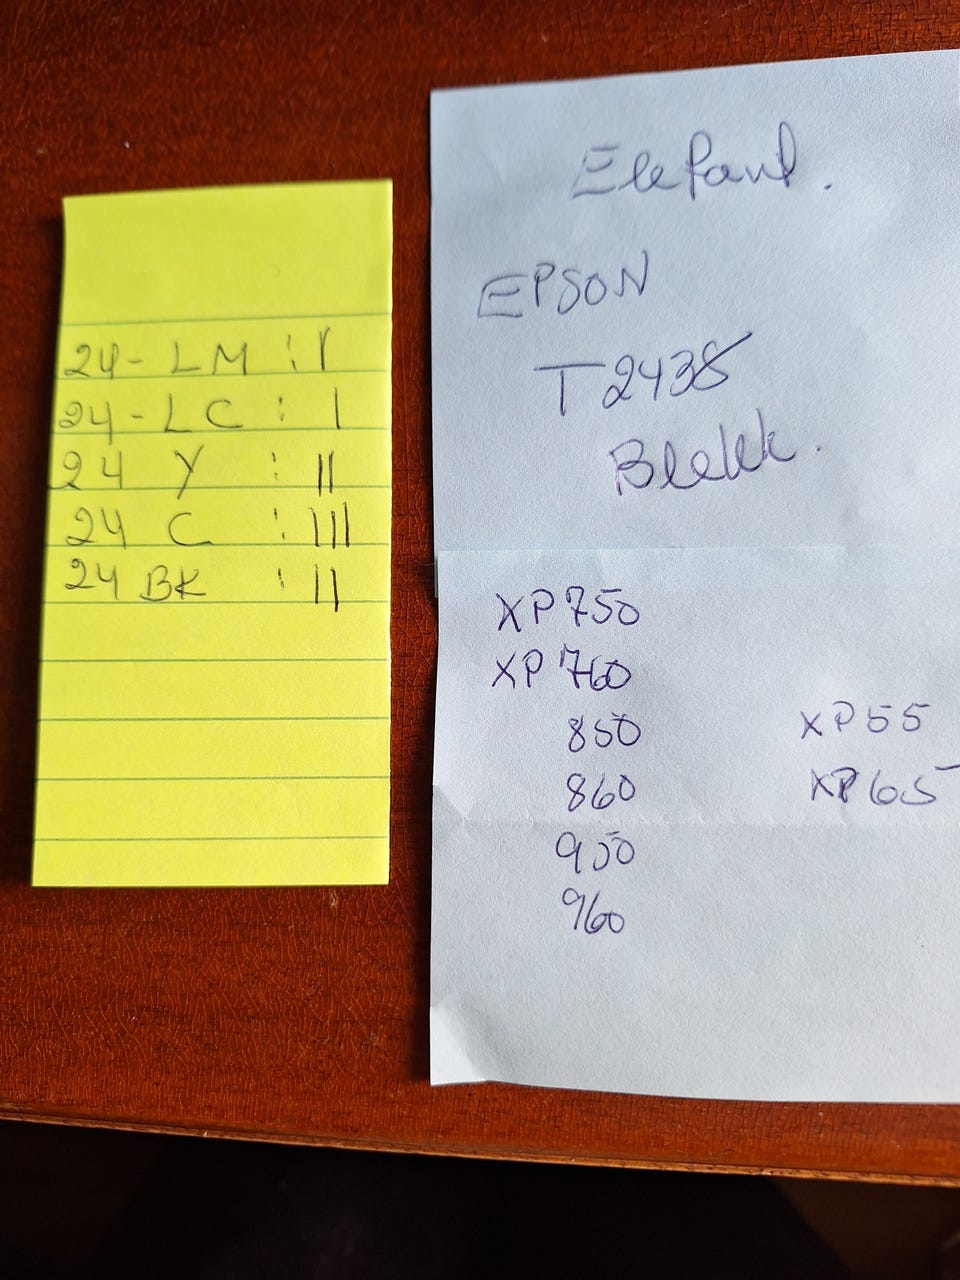 24-LM : I
24-LC : I
24 Y : II
24 C : III
24 BK : II
Elefant.
EPSON
T2438
Blekk.
XP750
XP760
850
860
950
960
XP55
XP65